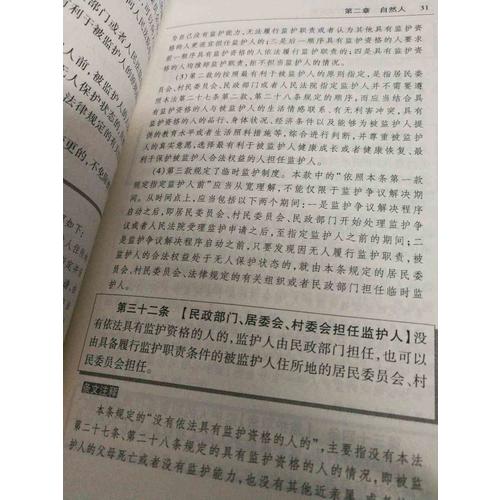 第二章 自然人 31
为自己没有监护能力,无法履行监护职责或者认为其他具有监护资
格的人更适宜担任监护人的;二是后一顺序具有监护资格的人要求
前一顺序具有监护资格的人依法履行监护职责的;四是具有监护资
格的人均推辞监护职责,拒不担当监护人的情况。
(3)第二款的按照最有利于被监护人的原则指定,是指居民委
员会、村民委员会、民政部门或者人民法院指定监护人并不需要遵
照本法第二十七条第二款、第二十八条规定的顺序,而应当结合具
有监护资格的人与被监护人的生活情感联系、有无利害冲突,具有
监护资格的人的品行、身体状况、经济条件以及能够为被监护人提
供的教育水平或者生活照料措施等,综合进行判断,并尊重被监护人
的真实意愿,选择最有利于被监护人健康成长或者健康恢复、最
利于保护被监护人合法权益的人担任监护人。
(4)第三款规定了临时监护制度。本款中的“依照本条第一款
规定指定监护人前”应当从宽理解,不能仅限于监护争议解决期
间。从时间点上,应当包括以下两个期间:一是监护争议解决程序
启动之后,即居民委员会、村民委员会、民政部门开始处理监护争
议或者人民法院受理监护申请之后,至指定监护人之前的期间;二
是监护争议解决程序启动之前,只要发现因无人履行监护职责,被
监护人的合法权益处于无人保护状态的,就由本条规定的居民委
员会、村民委员会、法律规定的有关组织或者民政部门担任临时监
护人。
第三十二条 【民政部门、居委会、村委会担任监护人】没
有依法具有监护资格的人的,监护人由民政部门担任,也可以
由具备履行监护职责条件的被监护人住所地的居民委员会、村
民委员会担任。
条文注释
本条规定的“没有依法具有监护资格的人的”,主要指没有本法
第二十七条、第二十八条规定的具有监护资格的人的情况,即被监
护人的父母死亡或者没有监护能力,也没有其他近亲属